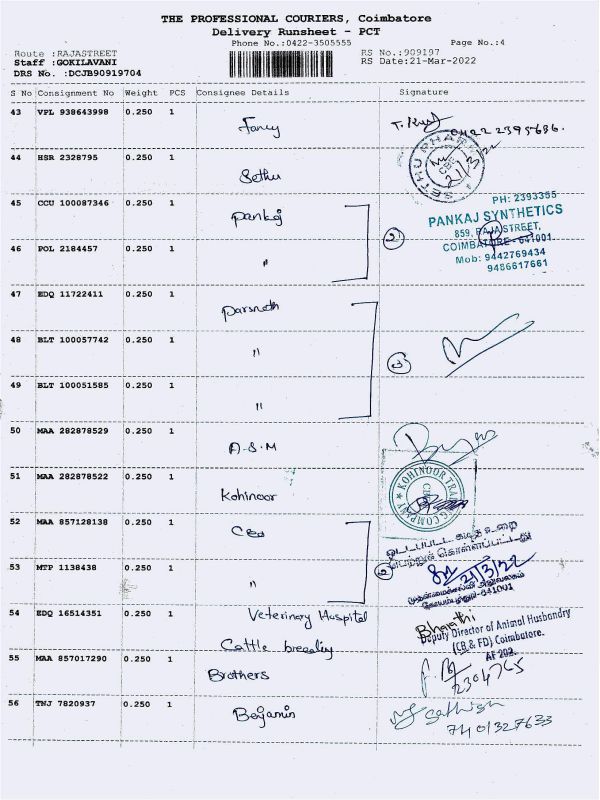 THE PROFESSIONAL COURIERS, Coimbatore
Delivery Runsheet - PCT
Phone No.:0422-3505555 Page No.:4
Route :RAJASTREET RS No.:909197
Staff :GOKILAVANI RS Date:21-Mar-2022
DRS No. :DCJB90919704
S No Consignment No Weight PCS Consignee Details Signature
43 VPL 938643998 0.250 1 Fancy
0422 2395686.
44 HSR 2328795 0.250 1 Sethu
21/3/22
45 CCU 100087346 0.250 1 Pankaj
PH: 2393355
PANKAJ SYNTHETICS
859, RAJA STREET,
COIMBATORE - 641001.
46 POL 2184457 0.250 1 " 2
Mob: 9442769434
9486617661
47 EDQ 11722411 0.250 1 Parsnath
48 BLT 100057742 0.250 1 " 3
49 BLT 100051585 0.250 1 "
50 MAA 282878529 0.250 1 A.S.M
51 MAA 282878522 0.250 1 Kohinoor
KOHINOOR TRADING COMPANY
52 MAA 857128138 0.250 1 CEO
53 MTP 1138438 0.250 1 " 2
21/3/22
641001
54 EDQ 16514351 0.250 1 Veterinary Hospital
Cattle breeding
Bharathi
Deputy Director of Animal Husbandry
(CB & FD) Coimbatore.
AF 202.
55 MAA 857017290 0.250 1 Brothers
2304765
56 TNJ 7820937 0.250 1 Benjamin
Sathish
7401327633